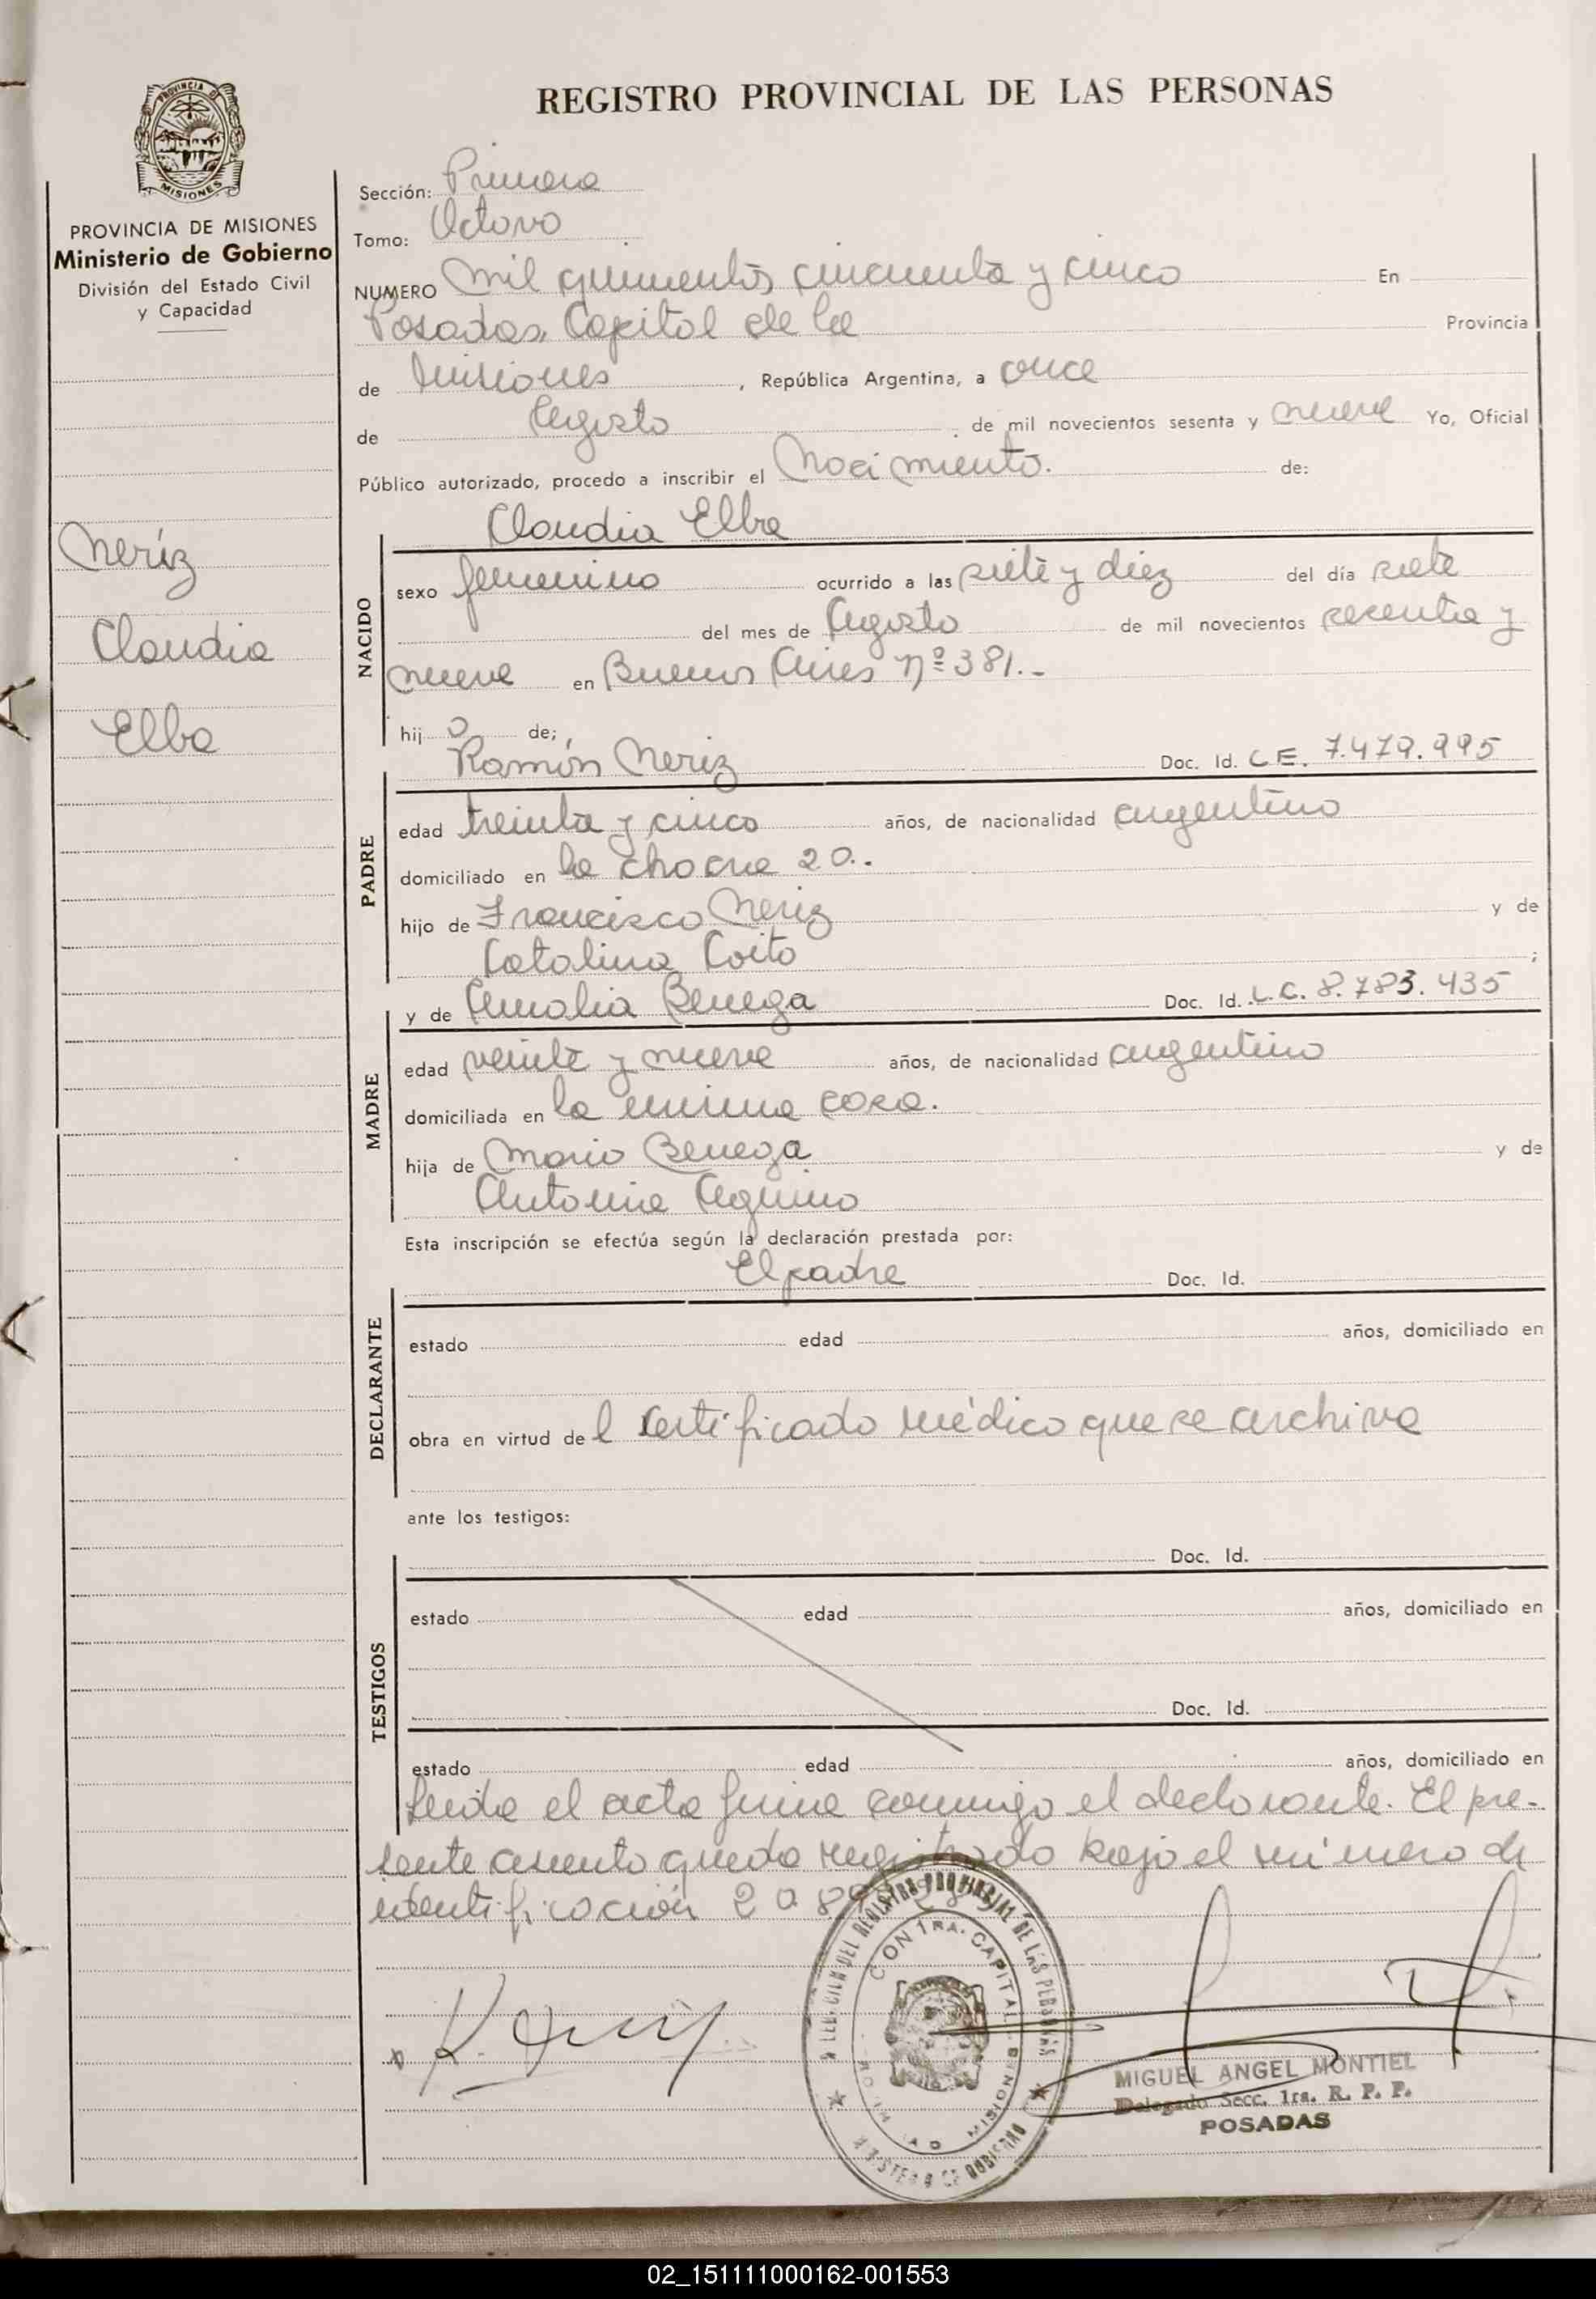 REGISTRO PROVINCIAL DE LAS PERSONAS
PROVINCIA DE
MISIONES
PROVINCIA DE MISIONES
Ministerio de Gobierno
División del Estado Civil
y Capacidad
Neríz
Claudia
Elba
Sección: Primera
Tomo: Octavo
NUMERO Mil quinientos cincuenta y cinco En
Posadas, Capital de la Provincia
de Misiones, República Argentina, a once
de Agosto de mil novecientos sesenta y nueve Yo, Oficial
Público autorizado, procedo a inscribir el Nacimiento. de:
Claudia Elba
NACIDO
sexo femenino ocurrido a las siete y diez del día siete
del mes de Agosto de mil novecientos sesenta y
nueve en Buenos Aires Nº 381.-
hij a de;
Ramón Neriz Doc. Id. L.E. 7.479.995
PADRE
edad treinta y cinco años, de nacionalidad argentino
domiciliado en la chacra 20..
hijo de Francisco Neriz y de
Catalina Coito ;
y de Amalia Benega Doc. Id. L.C. 8.783.435
MADRE
edad veinte y nueve años, de nacionalidad argentino
domiciliada en la misma casa.
hija de Mario Benega y de
Antonia Aquino
Esta inscripción se efectúa según la declaración prestada por:
El padre Doc. Id.
DECLARANTE
estado edad años, domiciliado en
obra en virtud de l certificado médico que se archiva
ante los testigos:
Doc. Id.
TESTIGOS
estado edad años, domiciliado en
Doc. Id.
estado edad años, domiciliado en
Leída el acta firma conmigo el declarante. El pre-
sente asiento queda registrado bajo el número de
identificación 20
DEL REGISTRO PROVINCIAL DE LAS PERSONAS
CAPITAL
MIGUEL ANGEL MONTIEL
Delegado Secc. 1ra. R. P. P.
POSADAS
02_151111000162-001553